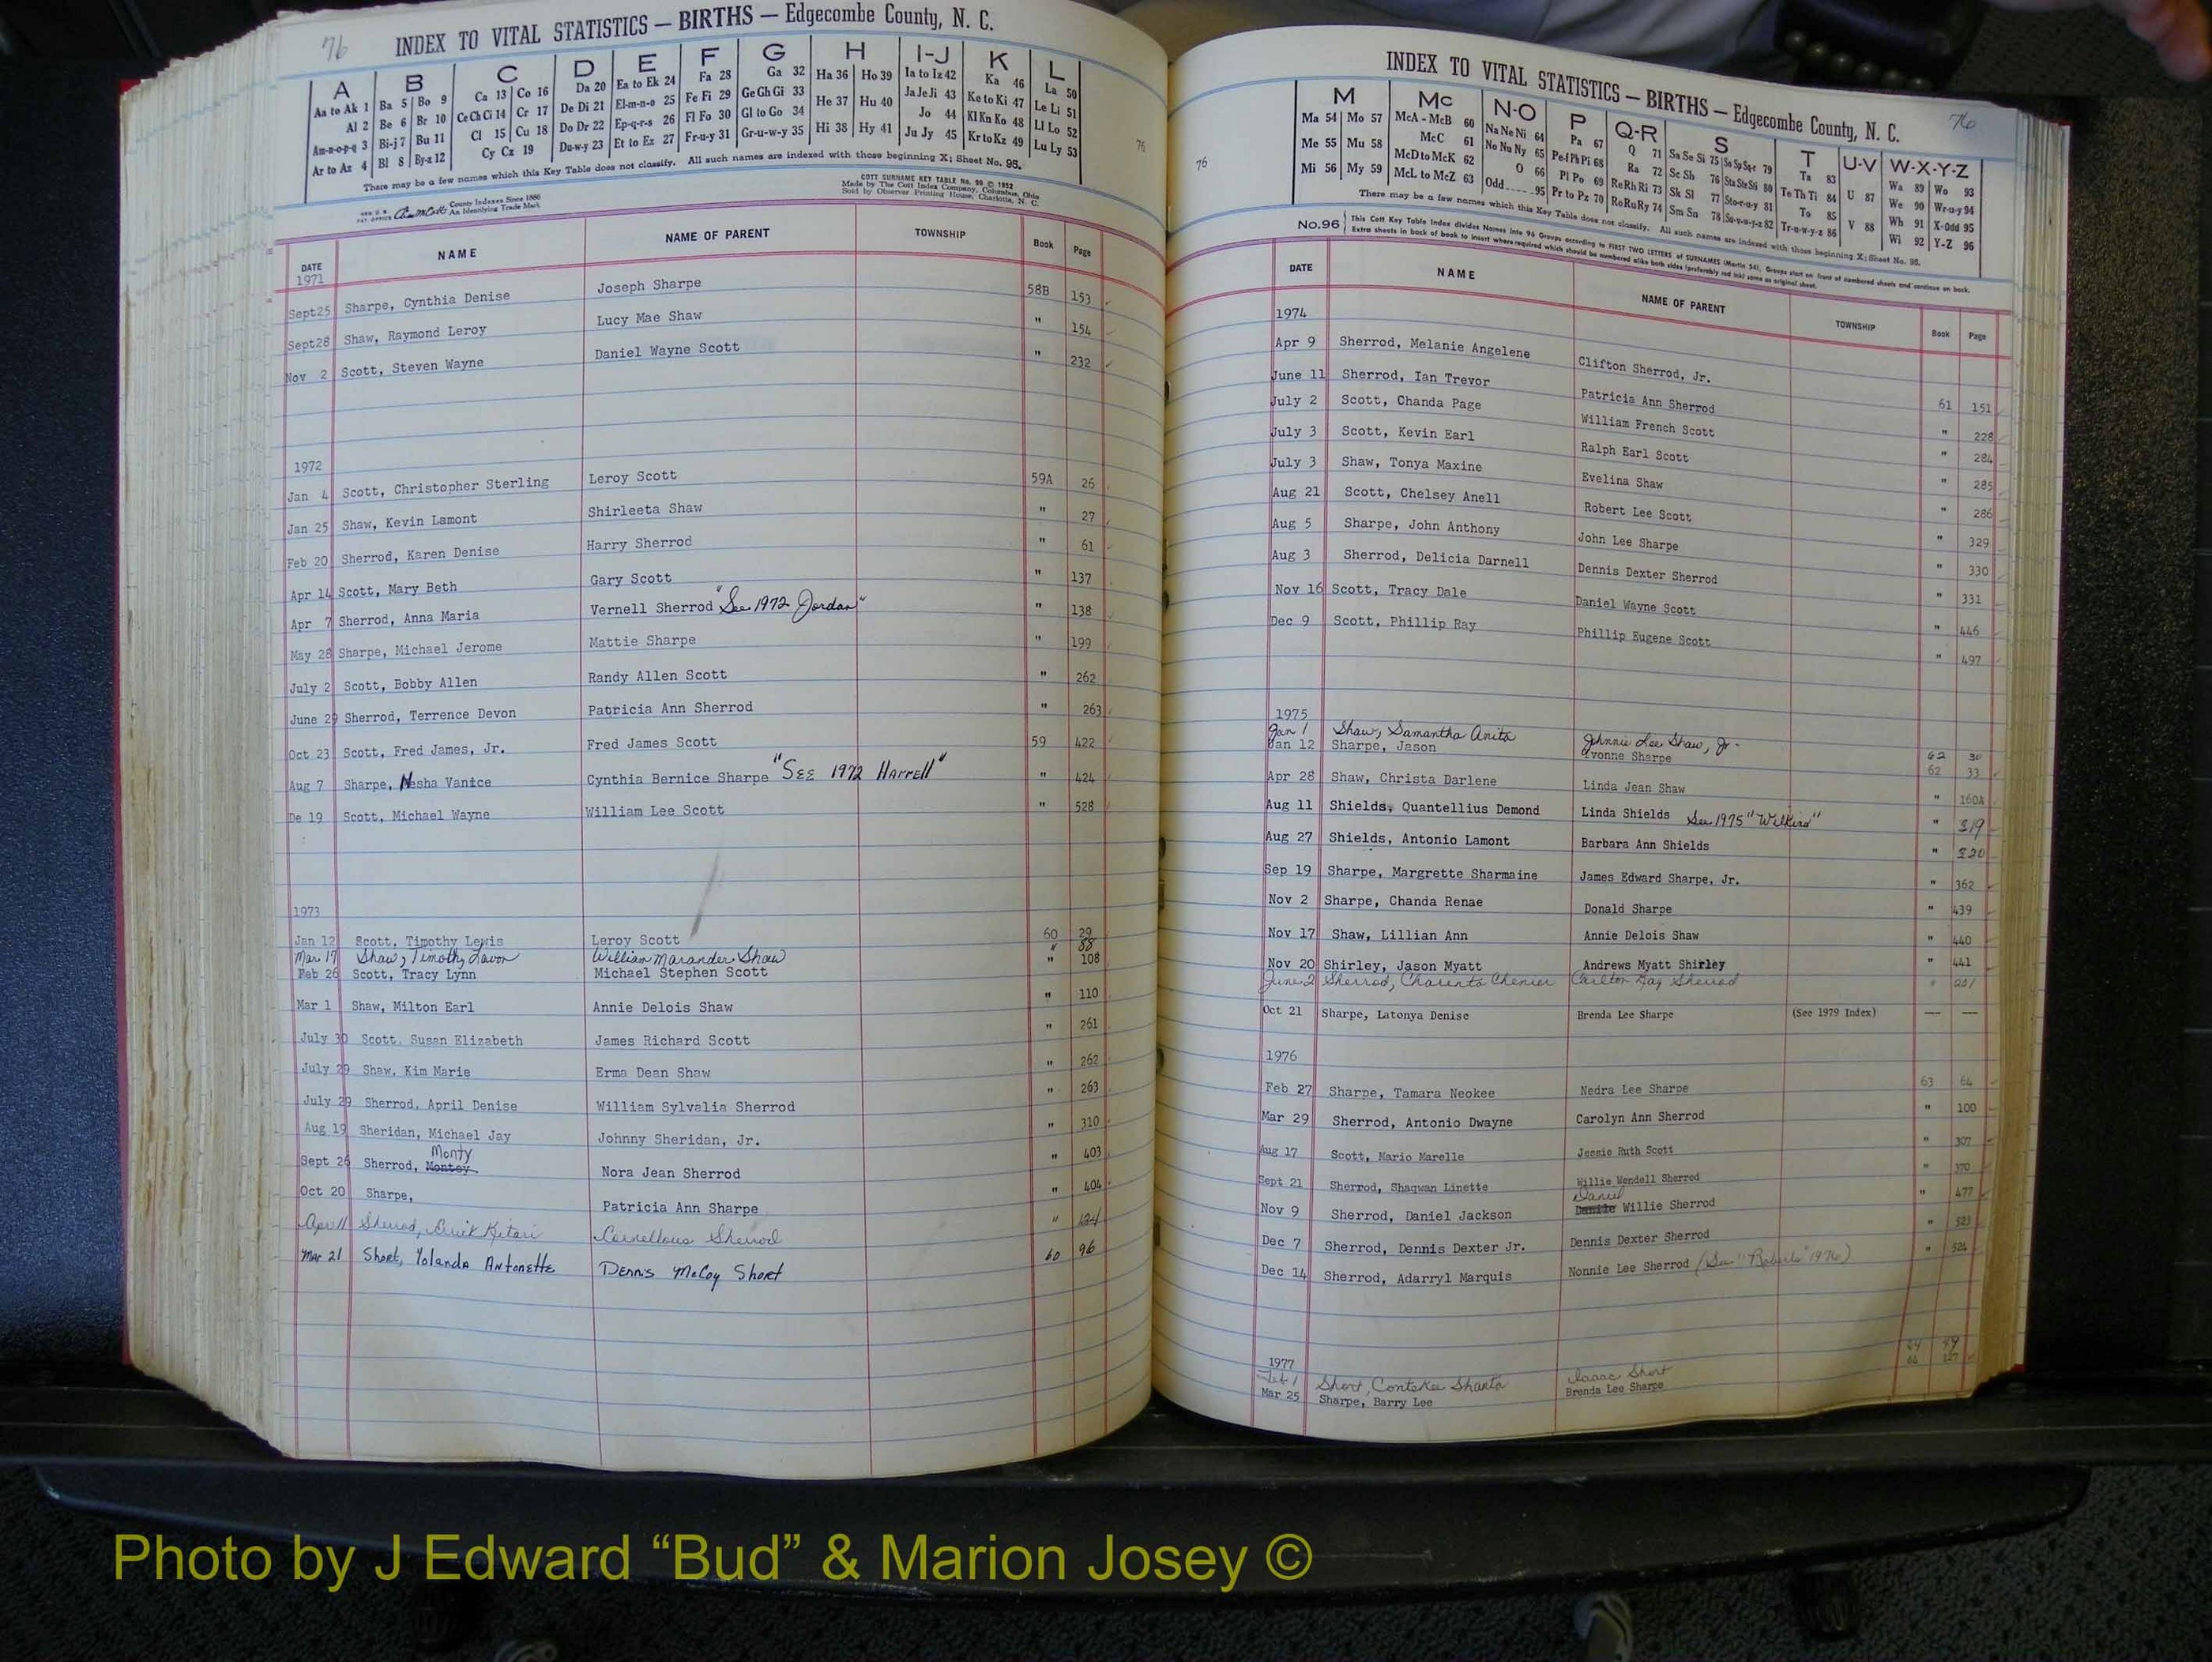 76 INDEX TO VITAL STATISTICS — BIRTHS — Edgecombe County, N. C.
A B C D E F G H I-J K L
Aa to Ak 1 Ba 5 Bo 9 Ca 13 Co 16 Da 20 Ea to Ek 24 Fa 28 Ga 32 Ha 36 Ho 39 Ia to Iz 42 Ka 46 La 50
Al 2 Be 6 Br 10 Ce Ch Ci 14 Cr 17 De Di 21 El-m-n-o 25 Fe Fi 29 Ge Gh Gi 33 He 37 Hu 40 Ja Je Ji 43 Ke to Ki 47 Le Li 51
Am-n-o-p-q 3 Bi-j 7 Bu 11 Cl 15 Cu 18 Do Dr 22 Ep-q-r-s 26 Fl Fo 30 Gl to Go 34 Hi 38 Hy 41 Jo 44 Kl Kn Ko 48 Ll Lo 52
Ar to Az 4 Bl 8 By-z 12 Cy Cz 19 Du-w-y 23 Et to Ez 27 Fr-u-y 31 Gr-u-w-y 35 Ju Jy 45 Kr to Kz 49 Lu Ly 53
76
There may be a few names which this Key Table does not classify. All such names are indexed with those beginning X; Sheet No. 96.
REG. U. S. PAT. OFFICE County Indexes Since 1888 An Identifying Trade Mark
COTT SURNAME KEY TABLE No. 96 © 1952
Made by The Cott Index Company, Columbus, Ohio
Sold by Observer Printing House, Charlotte, N. C.
DATE NAME NAME OF PARENT TOWNSHIP Book Page
1971
Sept25 Sharpe, Cynthia Denise Joseph Sharpe 58B 153
Sept28 Shaw, Raymond Leroy Lucy Mae Shaw " 154
Nov 2 Scott, Steven Wayne Daniel Wayne Scott " 232
1972
Jan 4 Scott, Christopher Sterling Leroy Scott 59A 26
Jan 25 Shaw, Kevin Lamont Shirleeta Shaw " 27
Feb 20 Sherrod, Karen Denise Harry Sherrod " 61
Apr 14 Scott, Mary Beth Gary Scott " 137
Apr 7 Sherrod, Anna Maria Vernell Sherrod "See 1972 Jordan" " 138
May 28 Sharpe, Michael Jerome Mattie Sharpe " 199
July 2 Scott, Bobby Allen Randy Allen Scott " 262
June 29 Sherrod, Terrence Devon Patricia Ann Sherrod " 263
Oct 23 Scott, Fred James, Jr. Fred James Scott 59 422
Aug 7 Sharpe, Nesha Vanice Cynthia Bernice Sharpe "SEE 1972 HARRELL" " 424
De 19 Scott, Michael Wayne William Lee Scott " 528
1973
Jan 12 Scott, Timothy Lewis Leroy Scott 60 29
Mar 17 Shaw, Timothy Lavon William Marander Shaw " 88
Feb 26 Scott, Tracy Lynn Michael Stephen Scott " 108
Mar 1 Shaw, Milton Earl Annie Delois Shaw " 110
July 30 Scott, Susan Elizabeth James Richard Scott " 261
July 29 Shaw, Kim Marie Erma Dean Shaw " 262
July 29 Sherrod, April Denise William Sylvalia Sherrod " 263
Aug 19 Sheridan, Michael Jay Johnny Sheridan, Jr. " 310
Monty
Sept 26 Sherrod, Montey Nora Jean Sherrod " 403
Oct 20 Sharpe, Patricia Ann Sharpe " 404
Apr 11 Sherrod, Cornellous Sherrod "
Mar 21 Short, Yolanda Antonette Dennis McCoy Short 60 96
INDEX TO VITAL STATISTICS — BIRTHS — Edgecombe County, N. C. 76
76
M Mc N-O P Q-R S T U-V W-X-Y-Z
Ma 54 Mo 57 McA - McB 60 Na Ne Ni 64 Pa 67 Q 71 Sa Se Si 75 So Sp Sq-r 79 Ta 83 Wa 89 Wo 93
Me 55 Mu 58 McC 61 No Nu Ny 65 Pe-f Ph Pi 68 Ra 72 Sc Sh 76 Sta Ste Sti 80 Te Th Ti 84 U 87 We 90 Wr-u-y 94
Mi 56 My 59 McD to McK 62 O 66 Pl Po 69 Re Rh Ri 73 Sk Sl 77 Sto-r-u-y 81 To 85 V 88 Wh 91 X-Odd 95
McL to McZ 63 Odd 95 Pr to Pz 70 Ro Ru Ry 74 Sm Sn 78 Su-v-w-y-z 82 Tr-u-w-y-z 86 Wi 92 Y-Z 96
There may be a few names which this Key Table does not classify. All such names are indexed with those beginning X; Sheet No. 96.
No.96 This Cott Key Table Index divides Names into 96 Groups according to FIRST TWO LETTERS of SURNAMES (Martin 54). Groups start on front of numbered sheets and continue on back.
Extra sheets in back of book to insert where required which should be numbered alike both sides (preferably red ink) same as original sheet.
DATE NAME NAME OF PARENT TOWNSHIP Book Page
1974
Apr 9 Sherrod, Melanie Angelene Clifton Sherrod, Jr. 61 151
June 11 Sherrod, Ian Trevor Patricia Ann Sherrod " 228
July 2 Scott, Chanda Page William French Scott " 284
July 3 Scott, Kevin Earl Ralph Earl Scott " 285
July 3 Shaw, Tonya Maxine Evelina Shaw " 286
Aug 21 Scott, Chelsey Anell Robert Lee Scott " 329
Aug 5 Sharpe, John Anthony John Lee Sharpe " 330
Aug 3 Sherrod, Delicia Darnell Dennis Dexter Sherrod " 331
Nov 16 Scott, Tracy Dale Daniel Wayne Scott " 446
Dec 9 Scott, Phillip Ray Phillip Eugene Scott " 497
1975
Jan 1 Shaw, Samantha Anita Johnnie Lee Shaw, Jr. 62 30
Jan 12 Sharpe, Jason Yvonne Sharpe 62 33
Apr 28 Shaw, Christa Darlene Linda Jean Shaw " 160A
Aug 11 Shields, Quantellius Demond Linda Shields See 1975 "Wilkins" " 319
Aug 27 Shields, Antonio Lamont Barbara Ann Shields " 320
Sep 19 Sharpe, Margrette Sharmaine James Edward Sharpe, Jr. " 362
Nov 2 Sharpe, Chanda Renae Donald Sharpe " 439
Nov 17 Shaw, Lillian Ann Annie Delois Shaw " 440
Nov 20 Shirley, Jason Myatt Andrews Myatt Shirley " 441
June 2 Sherrod, Carlton Ray Sherrod "
Oct 21 Sharpe, Latonya Denise Brenda Lee Sharpe (See 1979 Index) — —
1976
Feb 27 Sharpe, Tamara Neokee Nedra Lee Sharpe 63 64
Mar 29 Sherrod, Antonio Dwayne Carolyn Ann Sherrod " 100
Aug 17 Scott, Mario Marelle Jessie Ruth Scott " 307
Sept 21 Sherrod, Shaqwan Linette Willie Wendell Sherrod " 370
Daniel
Nov 9 Sherrod, Daniel Jackson Danile Willie Sherrod " 477
Dec 7 Sherrod, Dennis Dexter Jr. Dennis Dexter Sherrod " 523
Dec 14 Sherrod, Adarryl Marquis Nonnie Lee Sherrod (See "Roberts" 1976) " 524
1977
Feb 1 Short, Contekee Shanta Isaac Short 64
Mar 25 Sharpe, Barry Lee Brenda Lee Sharpe 64 127
Photo by J Edward “Bud” & Marion Josey ©